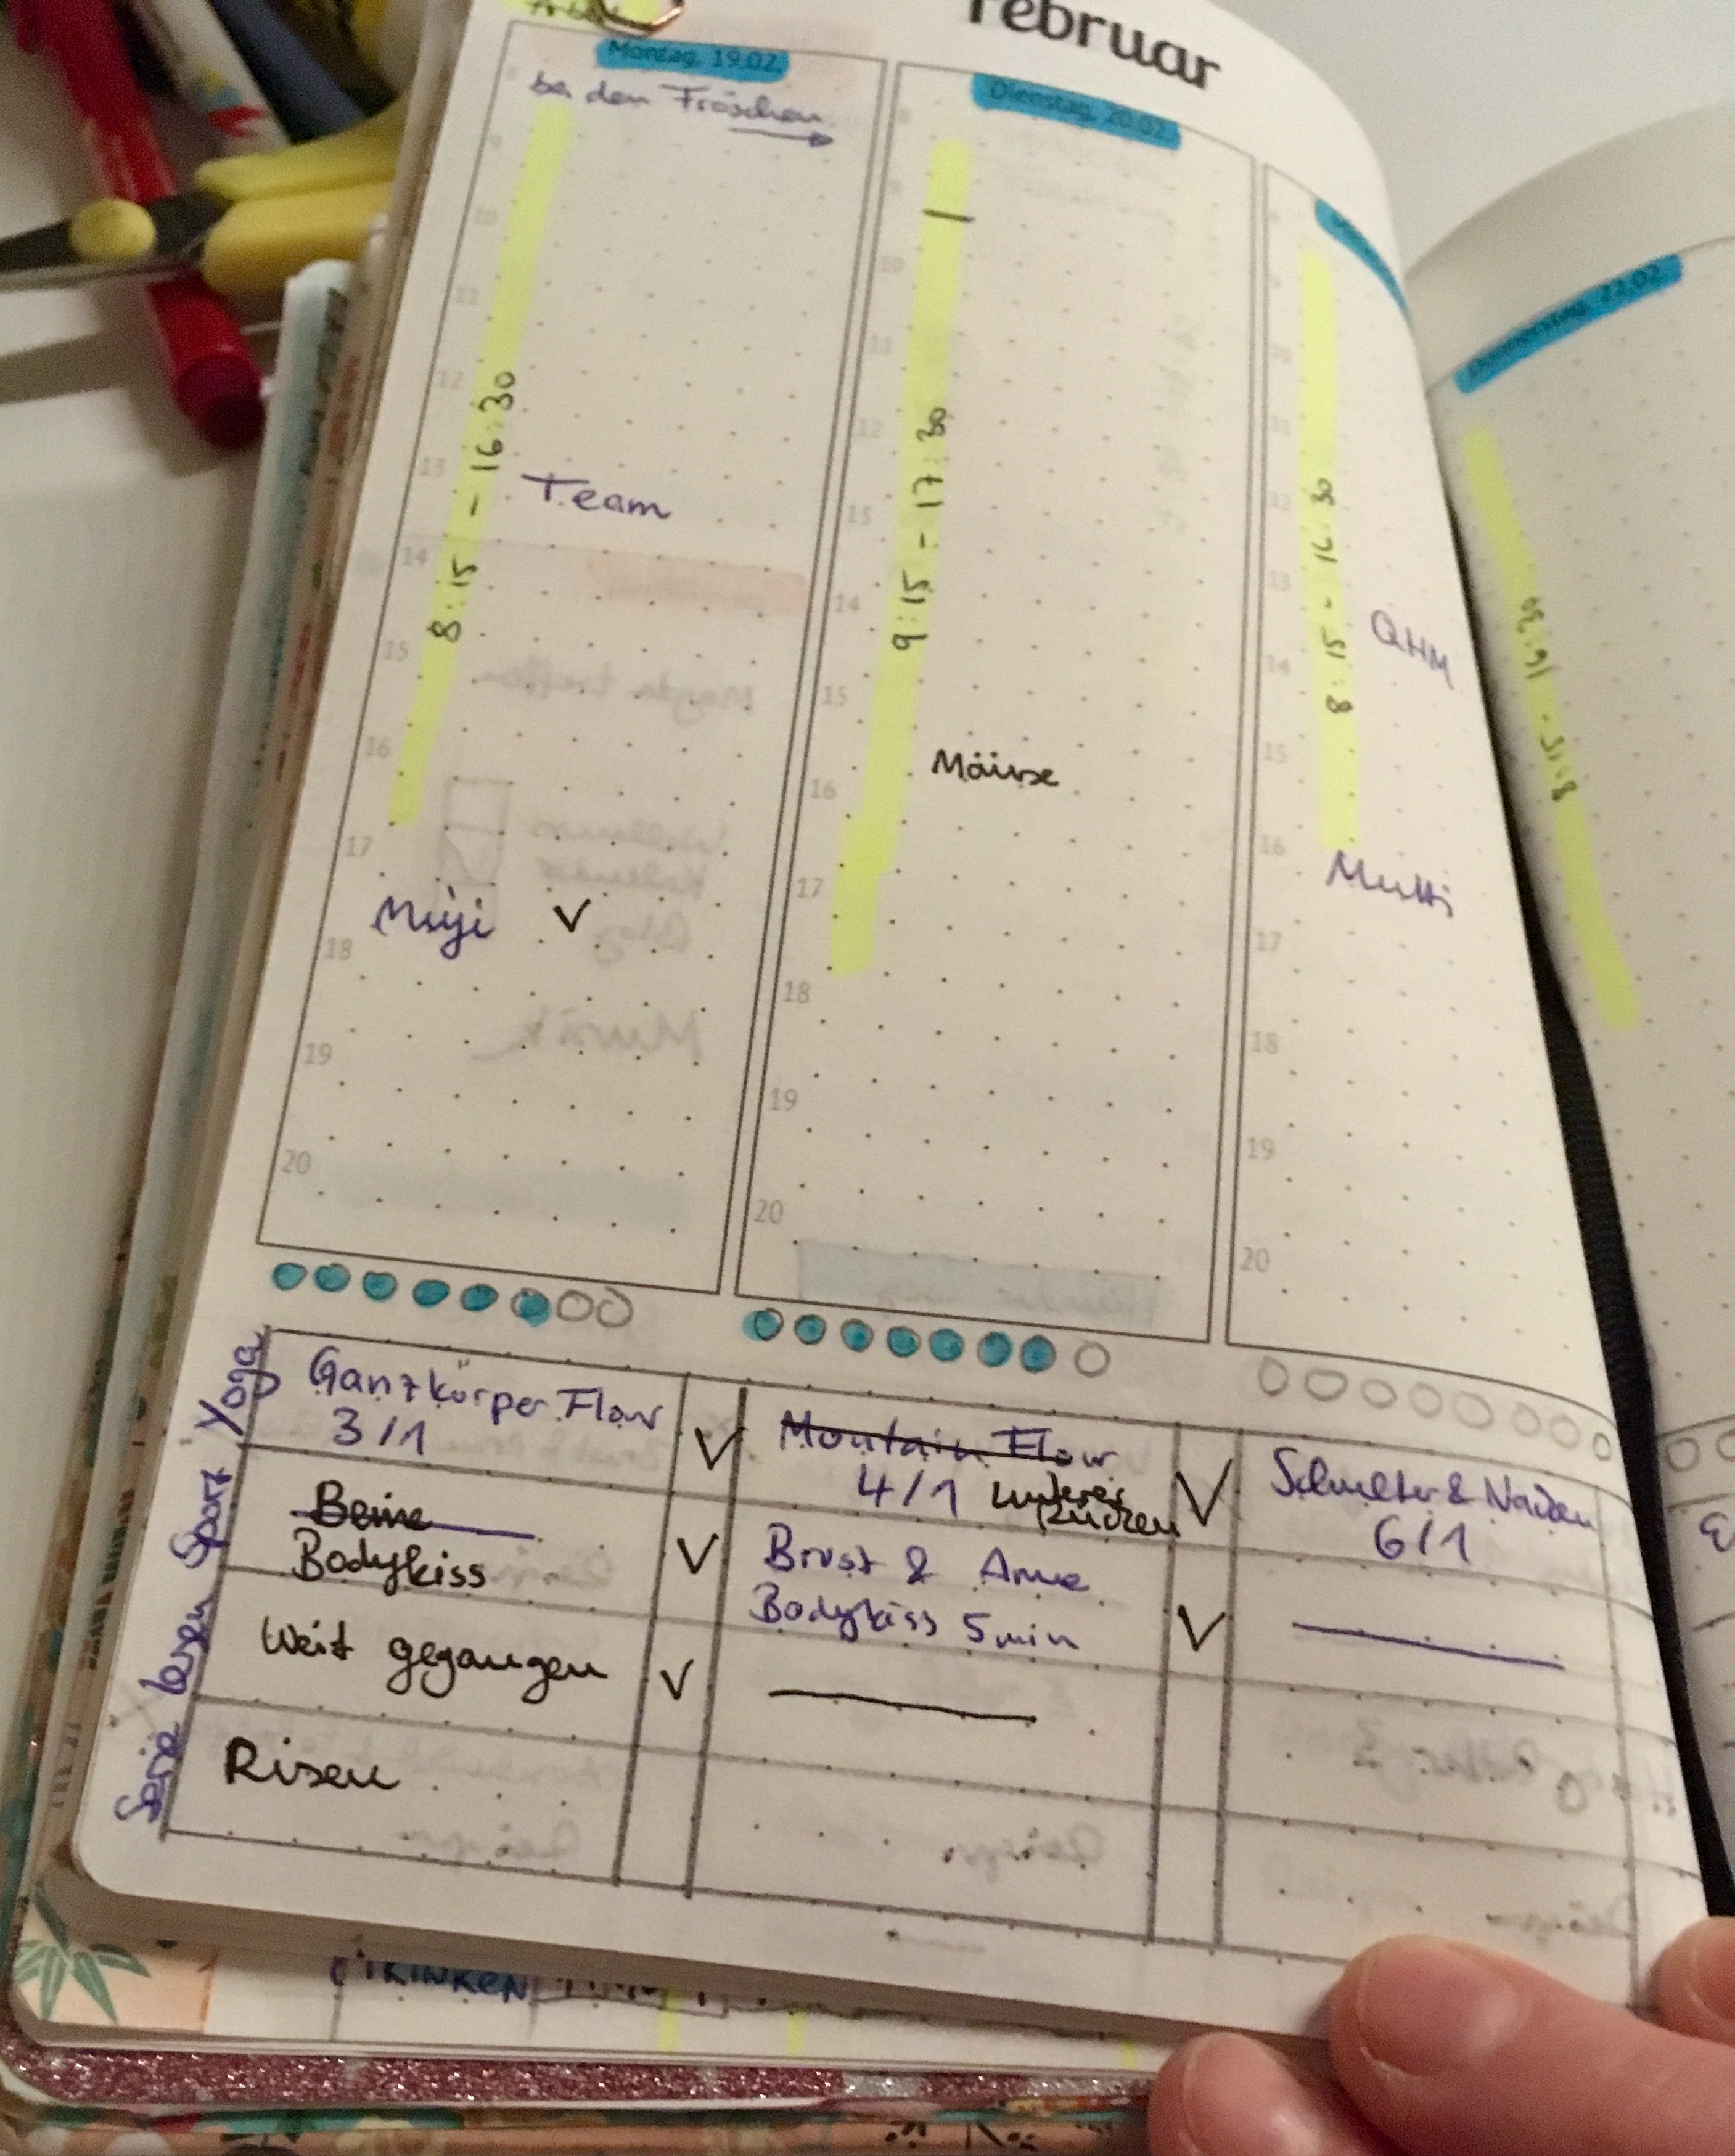 Arbeit
Februar
Montag, 19.02.
bei den Fröschen
9
10
11
12
13
14
15
16
17
18
19
20
8:15 - 16:30
Team
Muji ✓
Dienstag, 20.02.
9
10
11
12
13
14
15
16
17
18
19
20
9:15 - 17:30
Mäuse
9
10
11
12
13
14
15
16
17
18
19
20
8:15 - 16:30
QHM
Mutti
Donnerstag, 22.02.
8:15 - 16:30
Yoga
Ganzkörper Flow
3/1
✓
Mountain Flow
4/1 unterer
Rücken
✓
Schulter & Nacken
6/1
Sport
Beine
Bodykiss
✓
Brust & Arme
Bodykiss 5min
✓
lesen
Weit gegangen
✓
Serie
Risen
TRINKEN